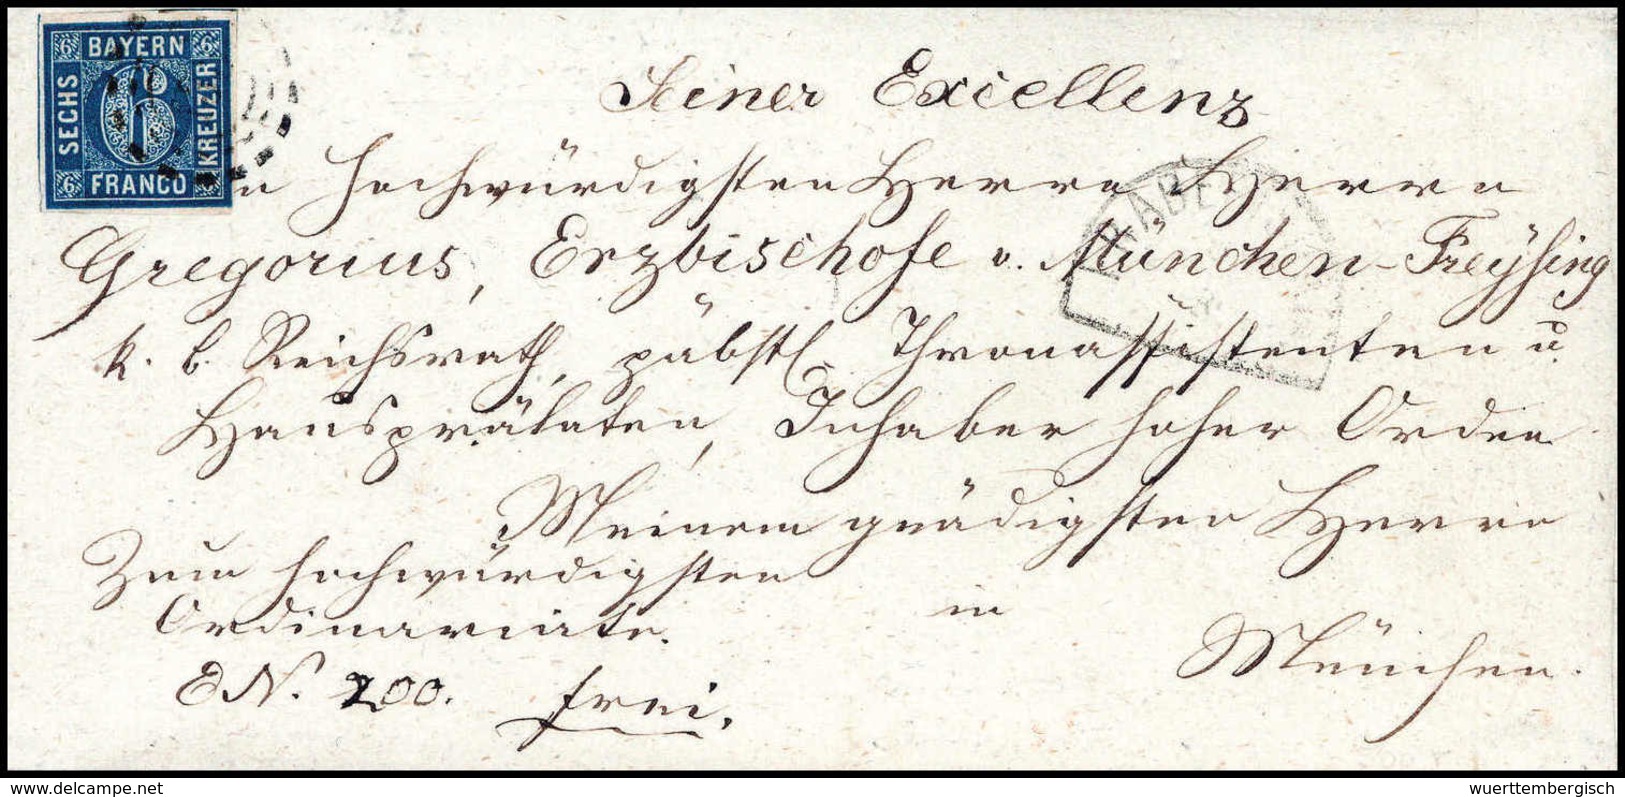 6 BAYERN 6
SECHS
6
KREUZER
6 FRANCO
Seiner Excellenz
hochwürdigsten Herrn Herrn
Gregorius, Erzbischofe v. München-Freysing
k. b. Reichsrath, päbstl. Thronassistenten u.
Hausprälaten, Inhaber hoher Orden
Meinem gnädigsten Herrn
Zum hochwürdigsten
Ordinariate.
in
München.
EN. 200. frei.
delcampe.net
wuerttembergisch